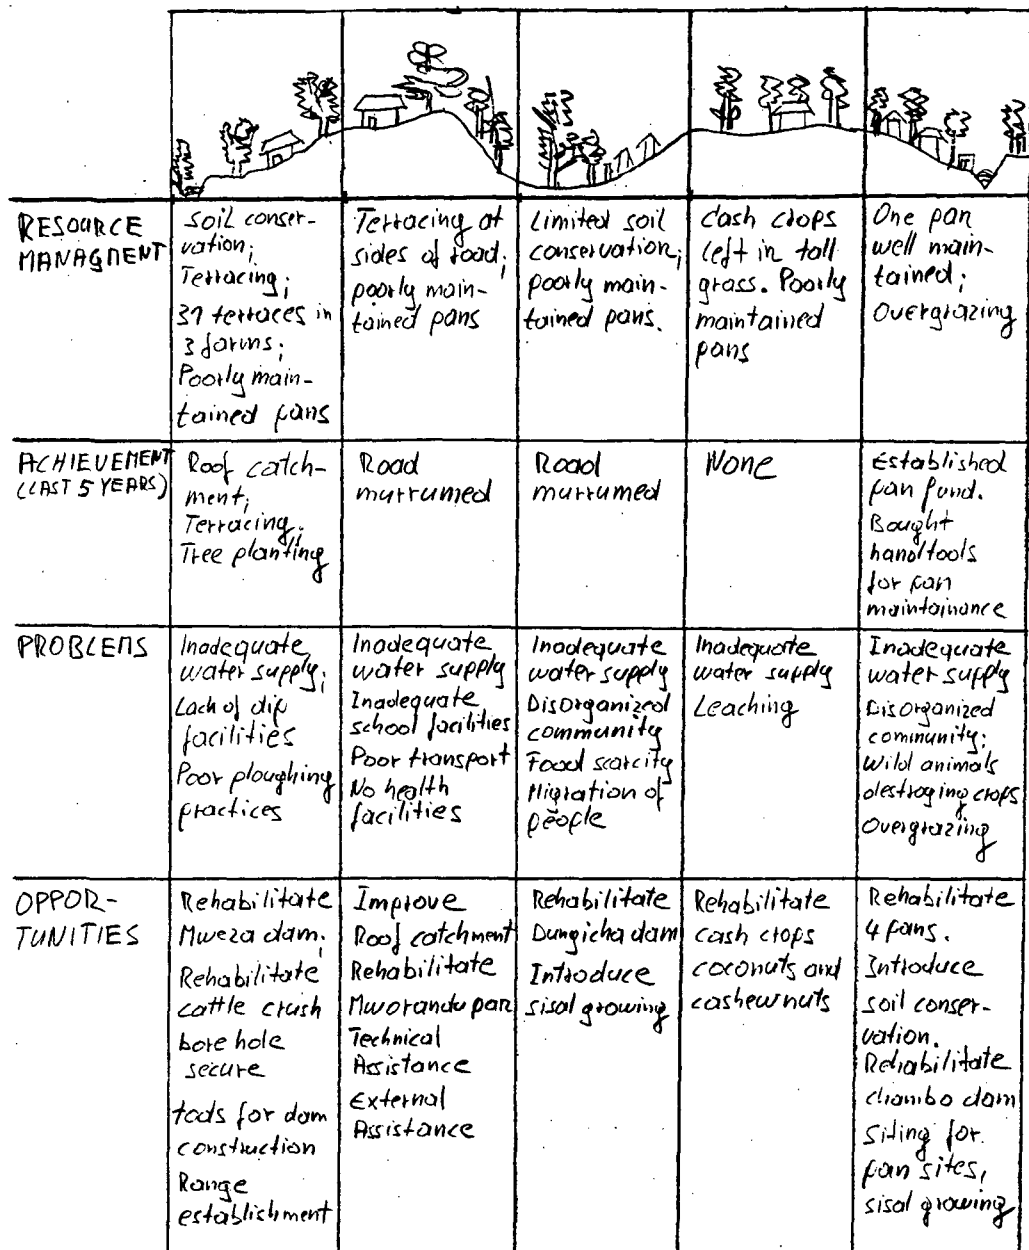 RESOURCE
MANAGMENT
Soil conser-
vation;
Terracing;
37 terraces in
3 farms;
Poorly main-
tained pans
Terracing at
sides of road;
poorly main-
tained pans
Limited soil
conservation;
poorly main-
tained pans.
Cash crops
left in tall
grass. Poorly
maintained
pans
One pan
well main-
tained;
Overgrazing
ACHIEVEMENT
(LAST 5 YEARS)
Roof catch-
ment;
Terracing;
Tree planting
Road
murrumed
Road
murrumed
None
Established
pan fund.
Bought
handtools
for pan
maintainance
PROBLEMS
Inadequate
water supply;
Lack of dip
facilities
Poor ploughing
practices
Inadequate
water supply
Inadequate
school facilities
Poor transport
No health
facilities
Inadequate
water supply
Disorganized
community
Food scarcity
Migration of
people
Inadequate
water supply
Leaching
Inadequate
water supply
Disorganized
community;
Wild animals
destroying crops
Overgrazing
OPPOR-
TUNITIES
Rehabilitate
Mweza dam;
Rehabilitate
cattle crush
bore hole
secure
tools for dam
construction
Range
establishment
Improve
Roof catchment
Rehabilitate
Mworandu pan
Technical
Assistance
External
Assistance
Rehabilitate
Dungicha dam
Introduce
sisal growing
Rehabilitate
cash crops
coconuts and
cashewnuts
Rehabilitate
4 pans.
Introduce
soil conser-
vation.
Rehabilitate
Chambo dam
Siting for
pan sites,
sisal growing